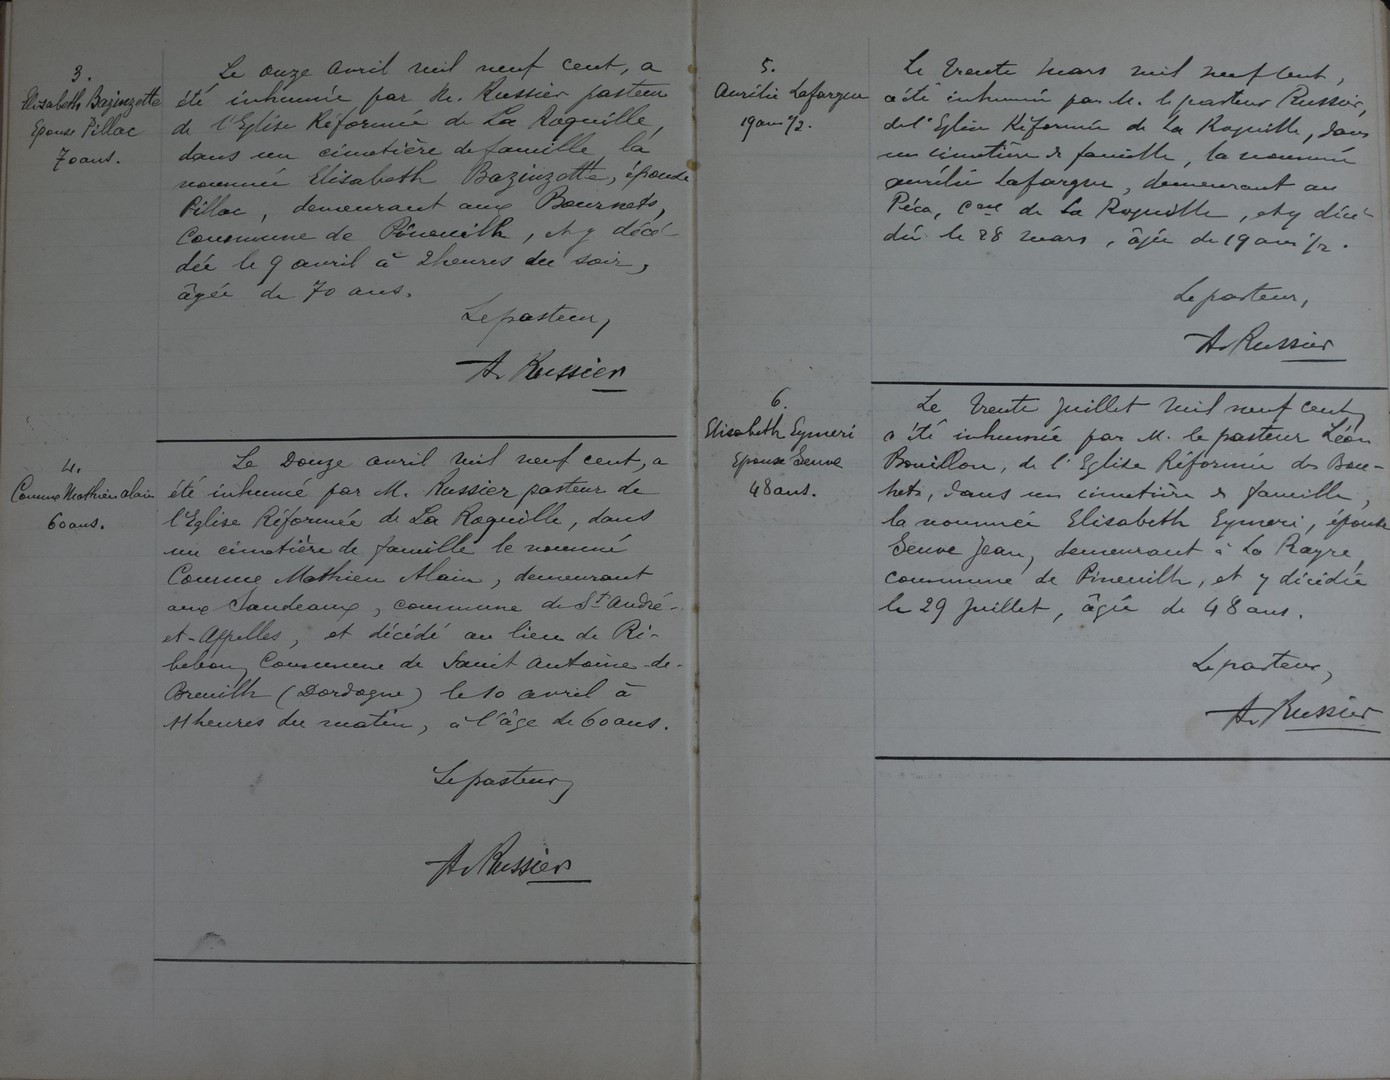 3.
Elisabeth Bazinzette
Epouse Pillac
70 ans.
Le onze avril mil neuf cent, a
été inhumée par M. Russier pasteur
de l'Eglise Réformée de La Roquille,
dans un cimetière de famille la
nommée Elisabeth Bazinzette, épouse
Pillac, demeurant aux Bournets,
commune de Pineuilh, et y décé-
dée le 9 avril à 2 heures du soir,
âgée de 70 ans.
Le pasteur,
A. Russier
4.
Comme Mathieu Alain
60 ans.
Le Douze avril mil neuf cent, a
été inhumé par M. Russier pasteur de
l'Eglise Réformée de La Roquille, dans
un cimetière de famille le nommé
Comme Mathieu Alain, demeurant
aux, commune de St André-
et-Appelles, et décédé au lieu de Ri-
bebon, Commune de Saint Antoine-de-
Breuilh (Dordogne) le 10 avril à
11 heures du matin, à l'âge de 60 ans.
Le pasteur,
A. Russier
5.
Aurélie Lafargue
19 ans 1/2.
Le trente mars mil neuf cent,
a été inhumée par M. le pasteur Russier,
de l'Eglise Réformée de La Roquille, dans
un cimetière de famille, la nommée
Aurélie Lafargue, demeurant au
Péca, cne de La Roquille, et y décé-
dée le 28 mars, âgée de 19 ans 1/2.
Le pasteur,
A. Russier
6.
Elisabeth Eymeri
Epouse Seuve
48 ans.
Le trente juillet mil neuf cent,
a été inhumée par M. le pasteur Léon
Bouillon, de l'Eglise Réformée des Bou-
hets, dans un cimetière de famille,
la nommée Elisabeth Eymeri, épouse
Seuve Jean, demeurant à La Rayre,
commune de Pineuilh, et y décédée
le 29 juillet, âgée de 48 ans.
Le pasteur,
A. Russier